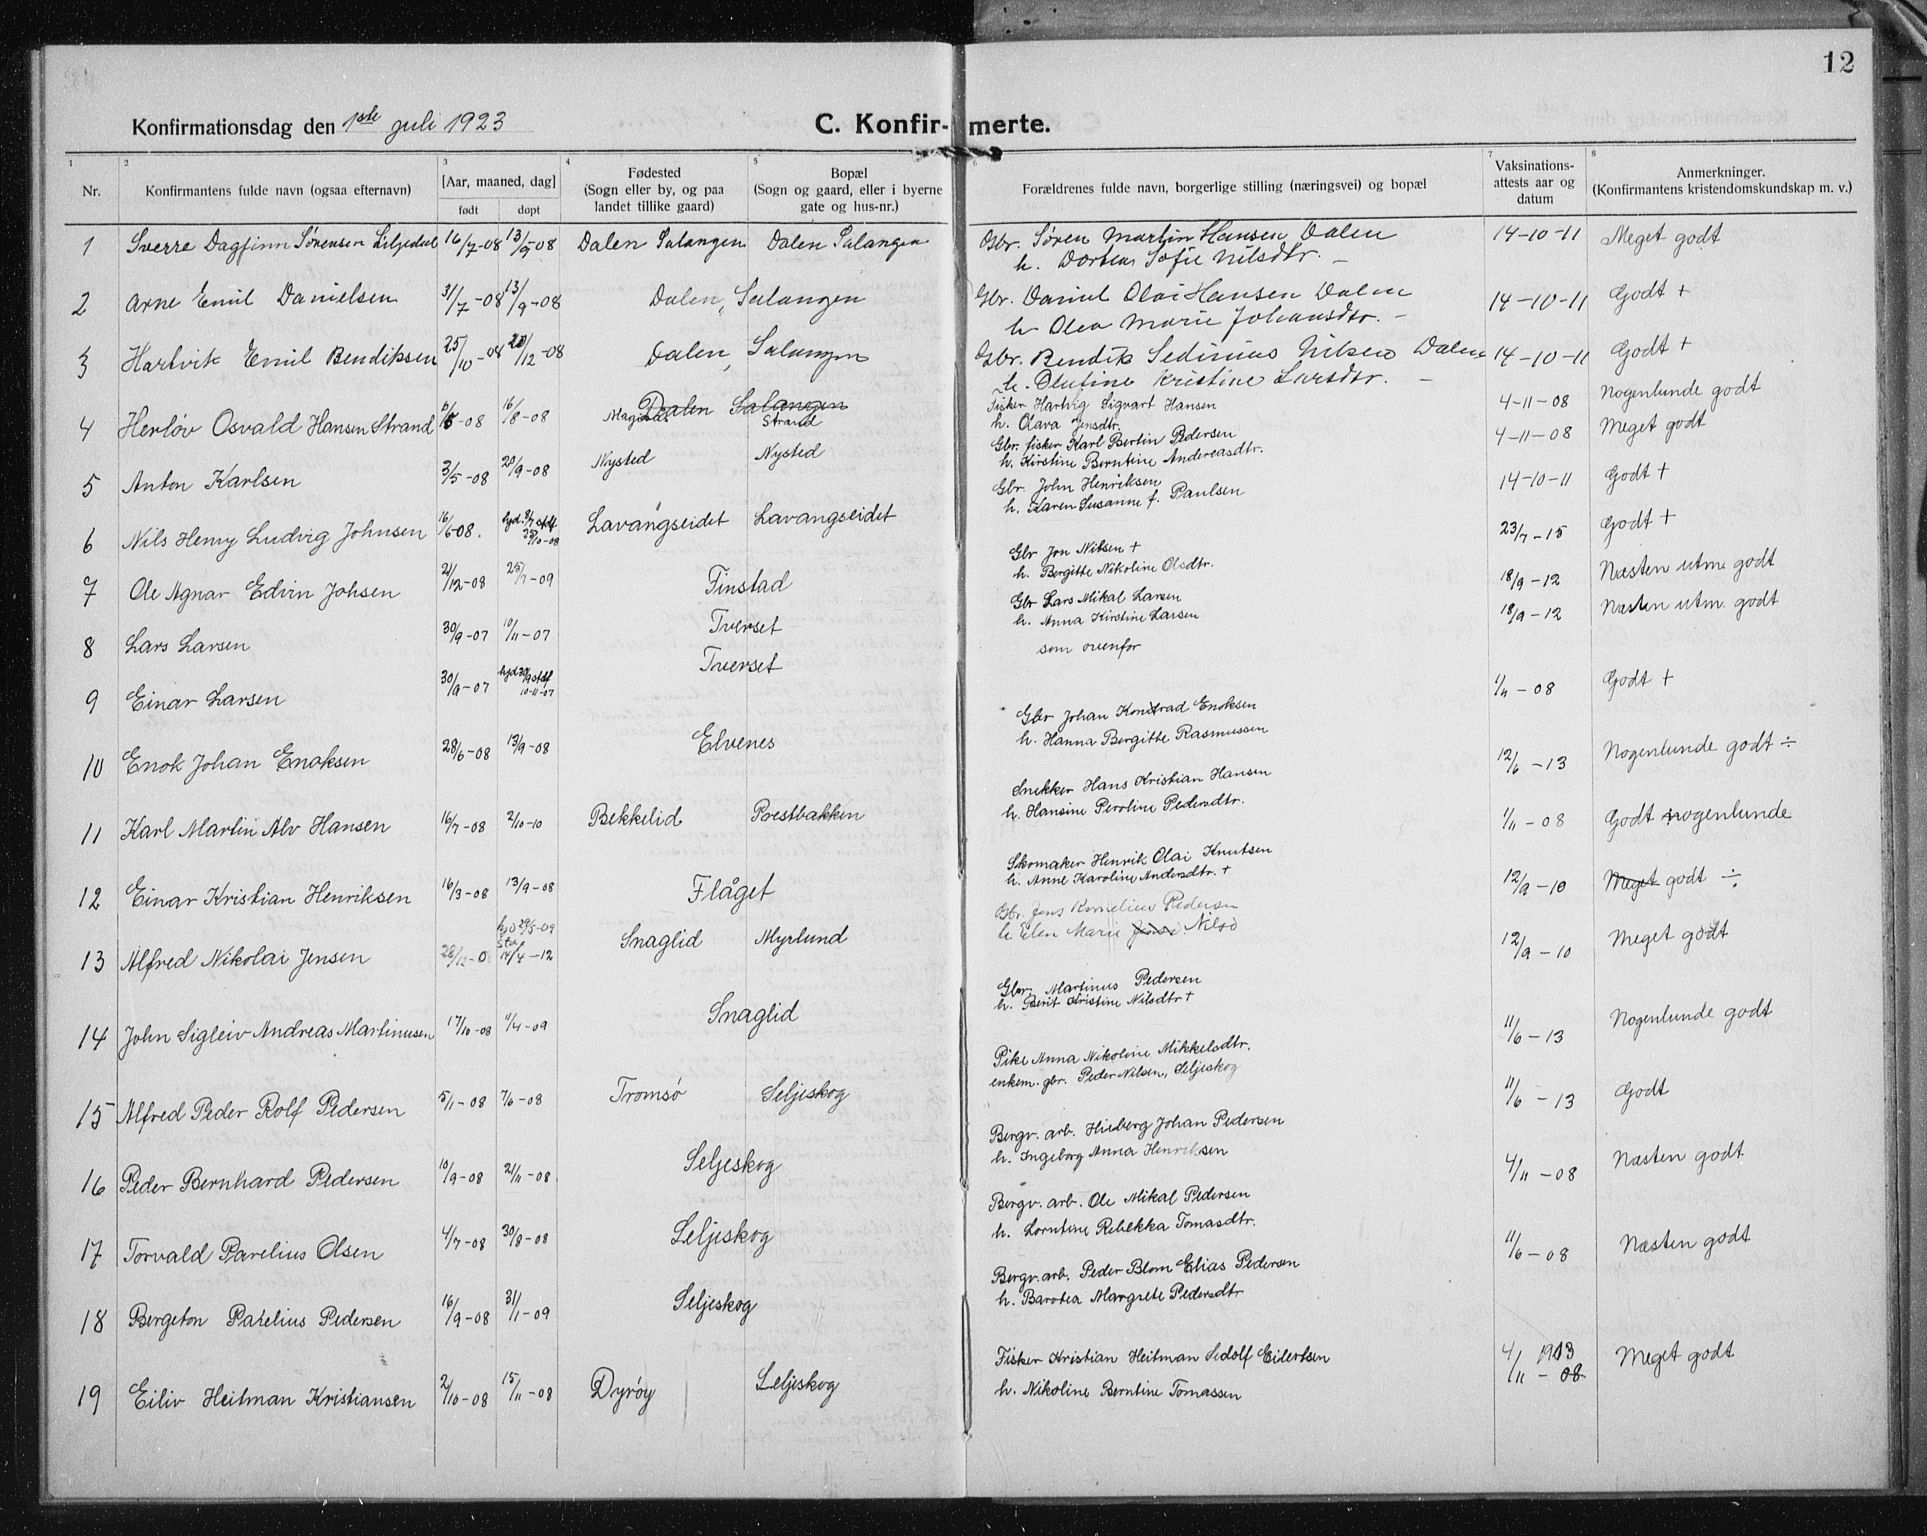 12
Konfirmationsdag den 1ste juli 1923
C. Konfir-merte.
1 2 3 4 5 6 7 8
Nr. Konfirmantens fulde navn (ogsaa efternavn) [Aar, maaned, dag] født døpt Fødested (Sogn eller by, og paa landet tillike gaard) Bopæl (Sogn og gaard, eller i byerne gate og hus-nr.) Forældrenes fulde navn, borgerlige stilling (næringsvei) og bopæl Vaksinations-attests aar og datum Anmerkninger. (Konfirmantens kristendomskundskap m. v.)
1 Sverre Dagfinn Sørensen 16/7-08 13/9-08 Dalen Salangen Dalen Salangen Gbr. Søren Martin Hansen Dalen 14-10-11 Meget godt
h. Dortea Sofie Nilsdtr. –
2 Arne Emil Danielsen 31/7-08 13/9-08 Dalen, Salangen Gbr. Daniel Olai Hansen Dalen 14-10-11 Godt +
h Olea Marie Johansdtr. –
3 Hartvik Emil Bendiksen 25/10-08 20/12-08 Dalen, Salangen Gbr. Bendik Sedinius Nilsen Dalen 14-10-11 Godt +
h. Olufine Kristine Larsdtr. –
4 Herløv Osvald Hansen Strand 16/8-08 Dalen Salangen Strand Fisker Hartvig Sigvart Hansen 4-11-08 Nogenlunde godt
h. Olara Jensdtr.
5 Anton Karlsen 3/5-08 20/9-08 Nysted Nysted Gbr. fisker Karl Bertin Pedersen 4-11-08 Meget godt
h. Kirstine Berntine Andreasdtr.
6 Nils Henry Ludvig Johnsen 16/6-08. Lavangseidet Lavangseidet Gbr. John Henriksen 14-10-11 Godt +
h. Karen Susanne f. Paulsen
7 Ole Agnar Edvin Johsen 21/12-08 25/7-09 Tinstad Gbr Jon Nilsen + 23/7-15 Godt +
h. Bergitte Nikoline Olsdtr.
8 Lars Larsen 30/9-07 10/11-07 Tverset Gbr Lars Mikal Larsen 18/9-12 Næsten utm. godt
h. Anna Kirstine Larsen
9 Einar Larsen 30/9-07 hjd 30/9 stdf 10-11-07 Tverset som ovenfor 18/9-12 Næsten utm. godt
10 Enok Johan Enoksen 28/6-08 13/9-08 Elvenes Gbr Johan Konrad Enoksen 1/11-08 Godt +
h. Hanna Bergitte Rasmussen
11 Karl Martin Alv Hansen 16/7-08 2/10-10 Bekkelid Prestbakken Snekker Hans Kristian Hansen 12/6-13 Nogenlunde godt ÷
h. Hansine Peroline Pedersdtr.
12 Einar Kristian Henriksen 16/3-08 13/9-08 Flåget Skomaker Henrik Olai Knutsen 1/11-08 Godt nogenlunde
h. Anne Karoline Andersdtr. +
13 Alfred Nikolai Jensen 14/4-12 Snaglid Myrlund Gbr. Jens Kornelius Pedersen 12/9-10 Meget godt ÷
h. Elen Marie Nilsd
14 John Sigleiv Andreas Martinusen 17/10-08 11/4-09 Snaglid Gbr. Martinus Pedersen 12/9-10 Meget godt
h. Berit Kristine Nilsdtr +
15 Alfred Peder Rolf Pedersen 5/1-08 7/6-08 Tromsø Seljeskog Pike Anna Nikoline Mikkelsdtr. 11/6-13 Nogenlunde godt
enkem. gbr. Peder Nilsen, Seljeskog
16 Peder Bernhard Pedersen 10/9-08 21/11-08 Seljeskog Bergv. arb. Hieberg Johan Pedersen 11/6-13 Godt
h. Ingeborg Anna Henriksen
17 Torvald Parelius Olsen 4/7-08 30/8-08 Seljeskog Bergv. arb. Ole Mikal Pedersen 4/11-08 Næsten godt
h. Lorntine Rebekka Tomasdtr.
18 Bergeton Parelius Pedersen 16/9-08 31/1-09 Seljeskog Bergv. arb. Peder Blom Elias Pedersen 11/6-08 Næsten godt
h. Barotea Margrete Pedersdtr
19 Eiliv Heitman Kristiansen 2/10-08 15/11-08 Dyrøy Seljeskog Fisker Kristian Heitman Sedolf Eilertsen 4/11-08 1913 Meget godt
h. Nikoline Berntine Tomassen